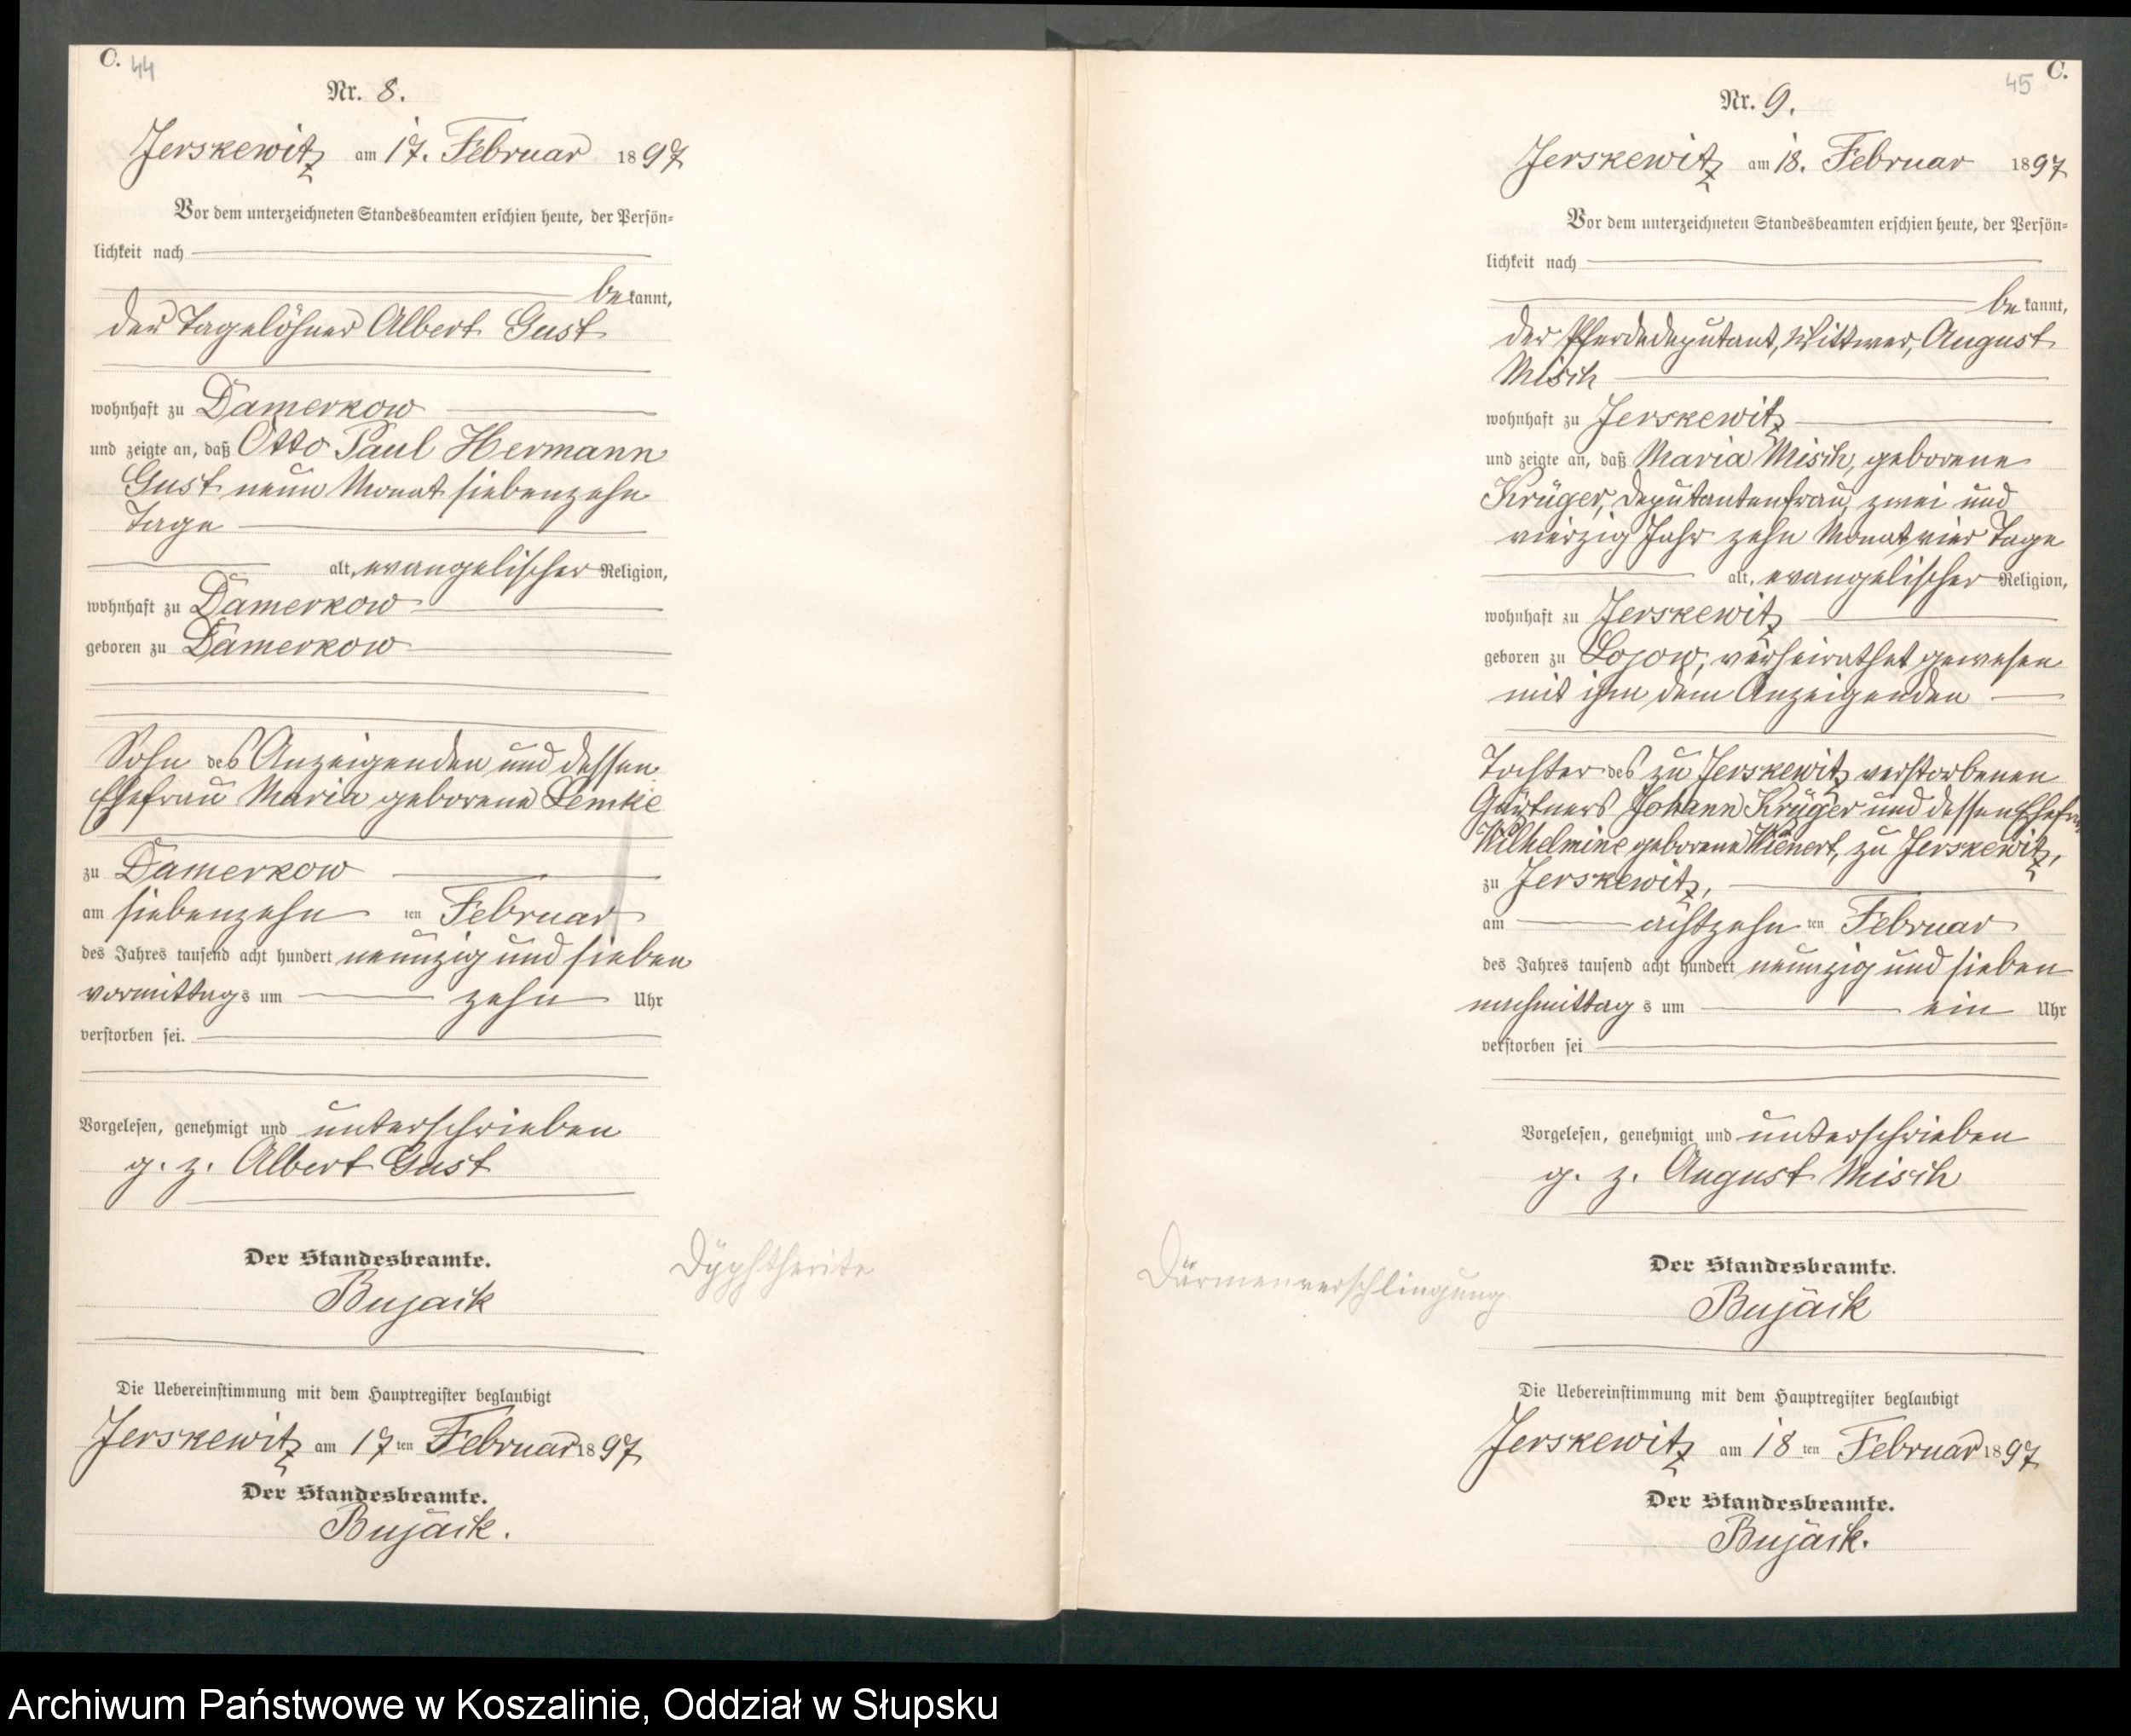 C. 44
Nr. 8.
Jerskewitz am 17. Februar 1897
Vor dem unterzeichneten Standesbeamten erschien heute, der Persön=
lichkeit nach
bekannt,
der Tagelöhner Albert Gust
wohnhaft zu Damerkow
und zeigte an, daß Otto Paul Hermann
Gust neun Monat siebenzehn
Tage
alt, evangelischer Religion,
wohnhaft zu Damerkow
geboren zu Damerkow
Sohn des Anzeigenden und dessen
Ehefrau Maria geborene Lemke
zu Damerkow
am siebenzehn ten Februar
des Jahres tausend acht hundert neunzig und sieben
vormittags um zehn Uhr
verstorben sei.
Vorgelesen, genehmigt und unterschrieben
g. z. Albert Gust
Der Standesbeamte.
Bujack
Dyphtherite
Die Uebereinstimmung mit dem Hauptregister beglaubigt
Jerskewitz am 17 ten Februar 1897
Der Standesbeamte.
Bujack.
45 C.
Nr. 9.
Jerskewitz am 18. Februar 1897
Vor dem unterzeichneten Standesbeamten erschien heute, der Persön=
lichkeit nach
bekannt,
der Pferdedeputant, Wittwer, August
Misch
wohnhaft zu Jerskewitz
und zeigte an, daß Maria Misch, geborene
Krüger, Deputantenfrau, zwei und
vierzig Jahr zehn Monat vier Tage
alt, evangelischer Religion,
wohnhaft zu Jerskewitz
geboren zu Lojow, verheirathet gewesen
mit ihm dem Anzeigenden
Tochter des zu Jerskewitz verstorbenen
Gärtners Johann Krüger und dessen Ehefrau
Wilhelmine geborene Wienert, zu Jerskewitz,
zu Jerskewitz,
am achtzehn ten Februar
des Jahres tausend acht hundert neunzig und sieben
nachmittags um ein Uhr
verstorben sei
Vorgelesen, genehmigt und unterschrieben
g. z. August Misch
Der Standesbeamte.
Bujack
Därmenverschlingung
Die Uebereinstimmung mit dem Hauptregister beglaubigt
Jerskewitz am 18 ten Februar 1897
Der Standesbeamte.
Bujack.
Archiwum Państwowe w Koszalinie, Oddział w Słupsku